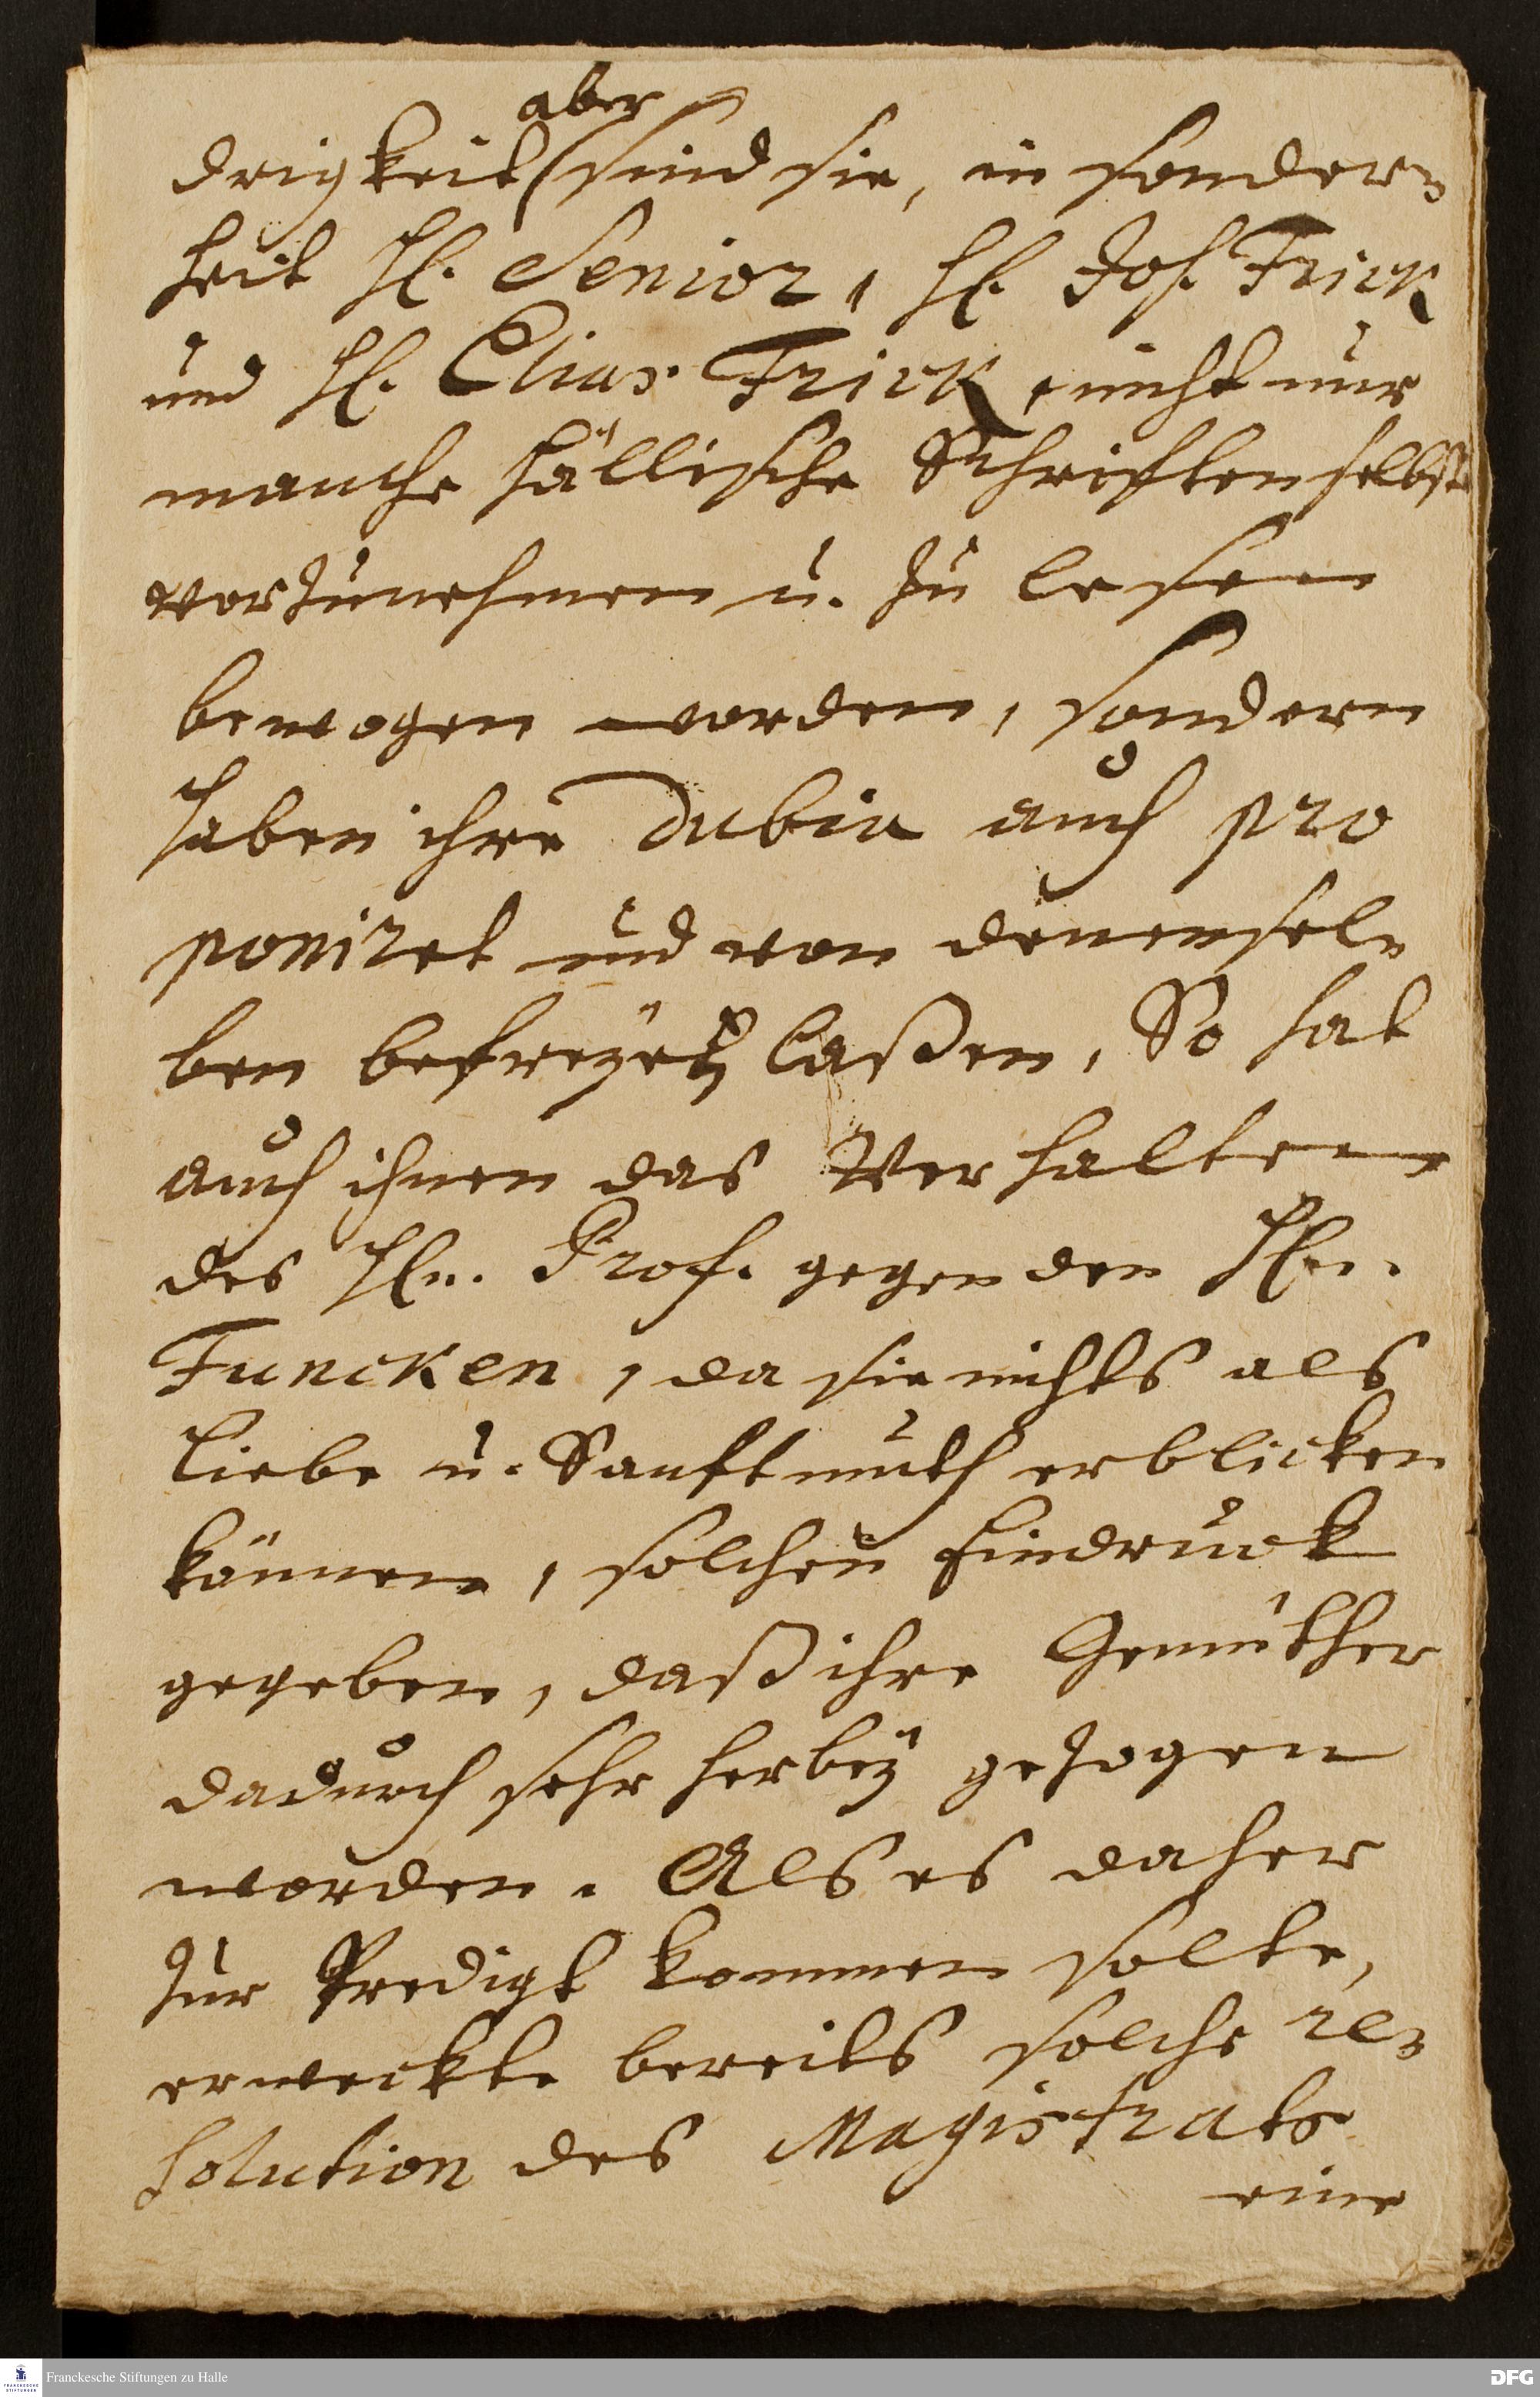 aber
drigkeit sind sie, in sondern-
heit H. Senior, H. Joh. Frick
und H. Elias Frick, nicht nur
manche Hällische Schrifften selbst
vorzunehmen u. zu lesen
bewogen worden, sondern
haben ihre Dubia auch pro
poniret und von denensel-
ben befreyet laßen, So hat
auch ihnen das Verhalten
des Hn. Prof. gegen den Hn.
Funcken, da sie nichts als
Liebe u. Sanfftmuth erblicken
können, solchen Eindruck
gegeben, daß ihre Gemüther
dadurch sehr herbey gezogen
worden. Als es daher
zur Predigt kommen solte,
erweckte bereits solche re-
solution des Magistrats
eine
Franckesche Stiftungen zu Halle
DFG